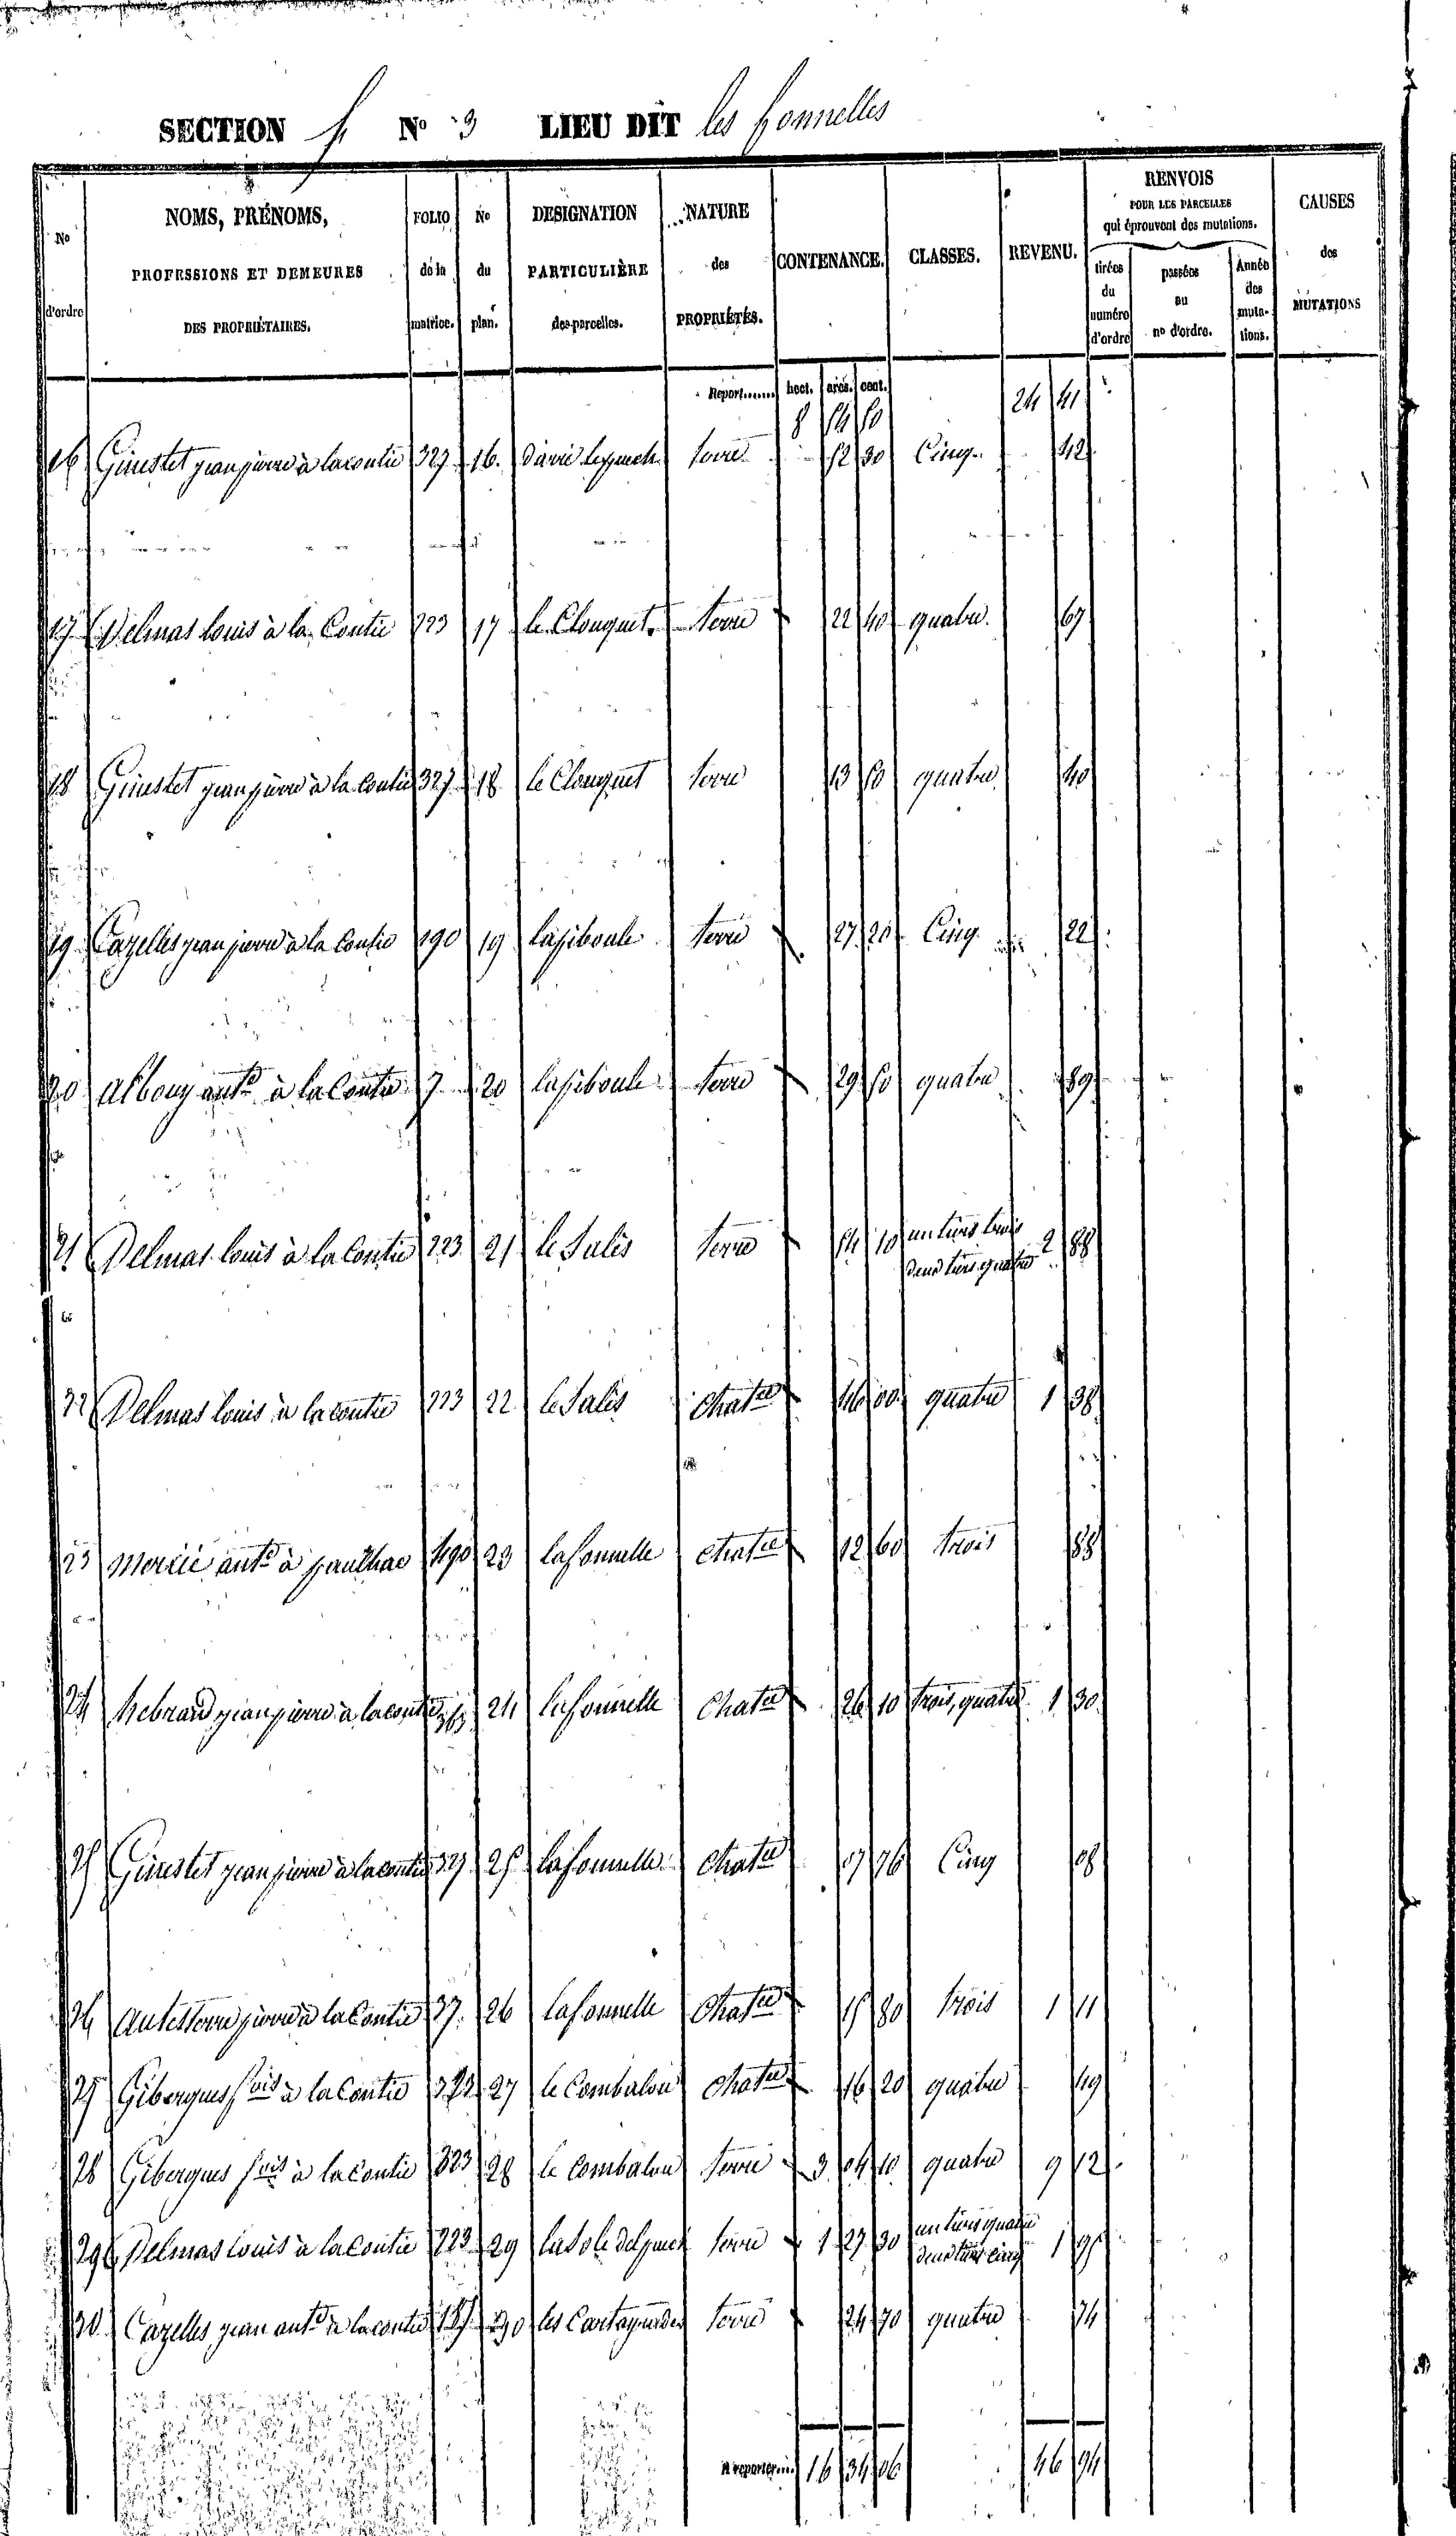 SECTION f No 3 LIEU DIT les fonnelles
No d'ordre | NOMS, PRÉNOMS, PROFESSIONS ET DEMEURES DES PROPRIÉTAIRES. | FOLIO de la matrice. | No du plan. | DESIGNATION PARTICULIÈRE des parcelles. | NATURE des PROPRIÉTÉS. | CONTENANCE. | CLASSES. | REVENU. | RENVOIS POUR LES PARCELLES qui éprouvent des mutations. tirées du numéro d'ordre | passées au no d'ordre. | Année des mutations. | CAUSES des MUTATIONS
Report....... hect. ares. cent.
8 54 50 24 41
16 Ginestet jean pierre à la contie 327 16. terre 52 30 Cinq 42
17 Delmas louis à la Contie 223 17 le Clouquet. terre 22 40 quatre. 67
18 Ginestet jean pierre à la contie 327 18 le Clouquet terre 13 50 quatre 40
19 Cazelles jean pierre à la contie 190 19 lapiboule terre 27 20 Cinq 22
20 albouy ante à la Contie 7 20 lapiboule terre 29 50 quatre 89
21 Delmas louis à la Contie 223 21 le Salés terre 54 10 un tiers trois deux tiers quatre 2 88
22 Delmas louis à la contie 223 22 le Salés chatie 46 00 quatre 1 38
23 mercié ante à paulhac 490 23 lafonnelle chatie 12 60 trois 88
24 hebrard jean pierre à la contie 24 lafonnelle Chatie 26 10 trois, quatre 1 30
25 Ginestet jean pierre à la contie 327 25 lafonnelle chatie 07 76 Cinq 08
26 autesserre pierre à la Contie 37. 26 lafonnelle Chatie 15 80 trois 1 11
27 Gibergues fois à la Contie 323 27 le Combalou chatie 16 20 quatre 49
28 Gibergues fois à la contie 323 28 le combalou terre 3 04 10 quatre 9 12
29 Delmas louis à la contie 223 29 terre 1 27 30 un tiers quatre deux tiers cinq 1 95
30 Cazelles jean ante à la contie 187 30 les Cartayrades terre 24 70 quatre 74
A reporter.... 16 34 06 46 94